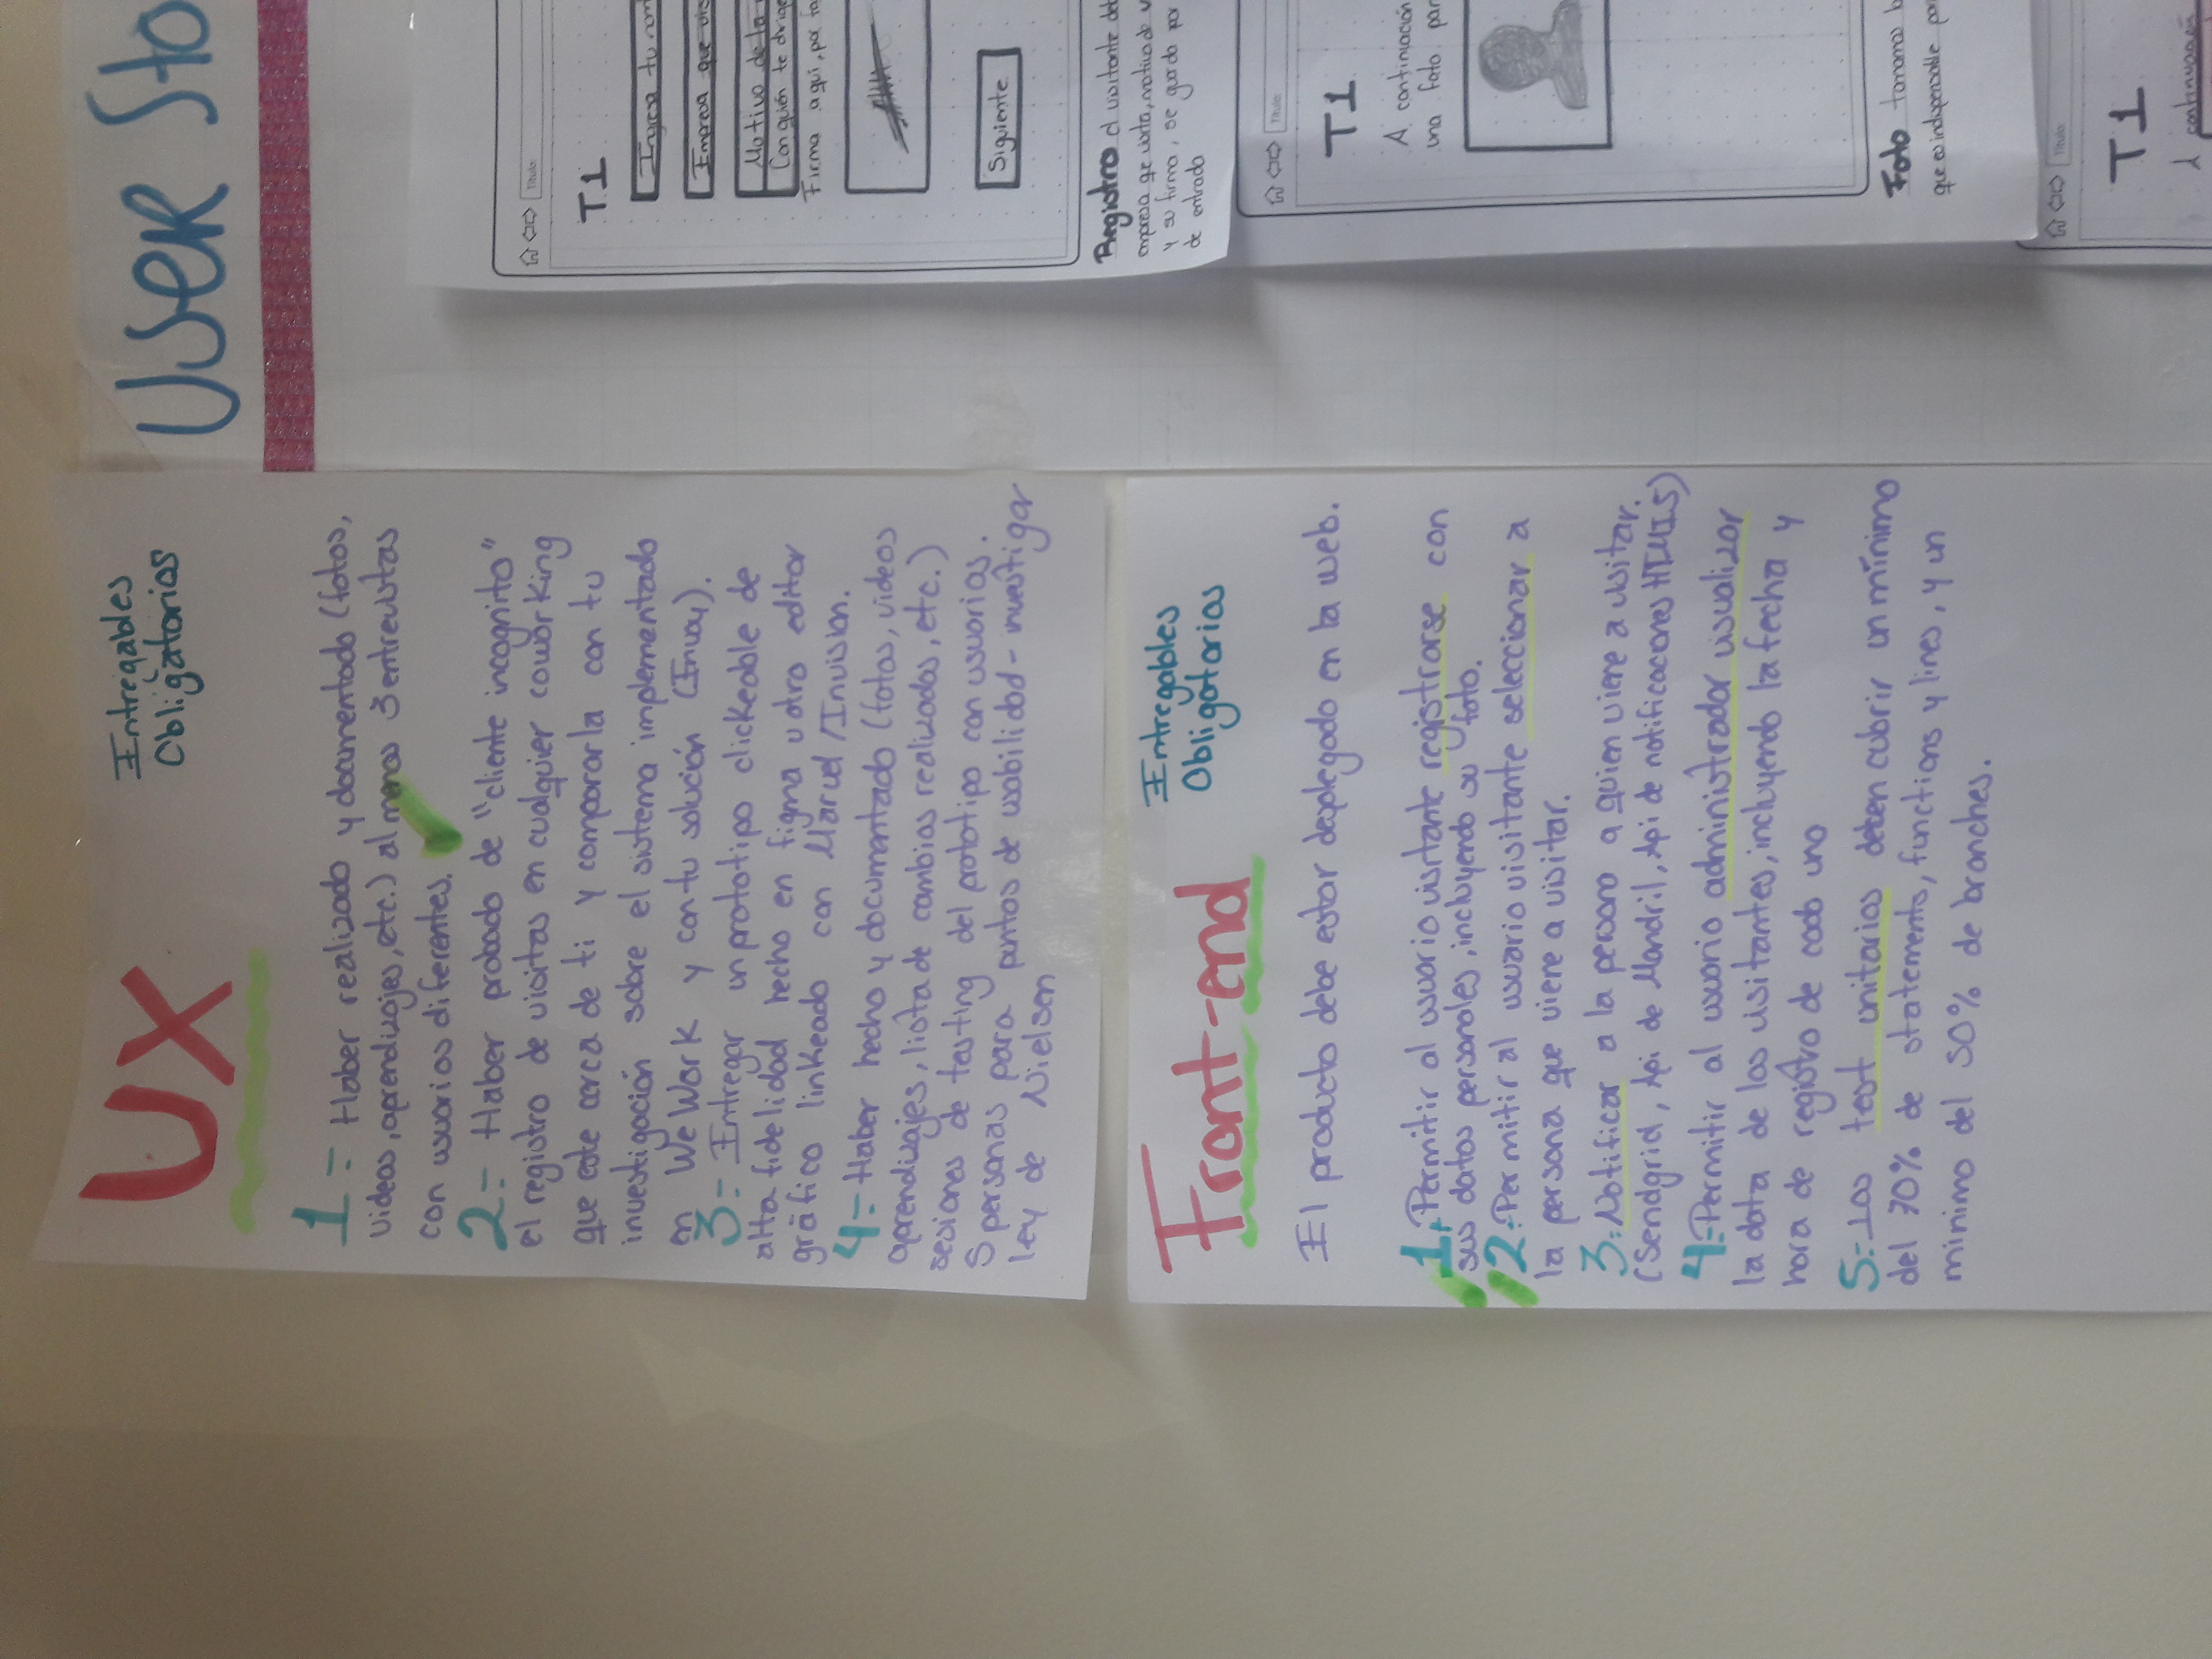 UX
Entregables
Obligatorios
1.- Haber realizado y documentado (fotos,
videos, aprendizajes, etc.) al menos 3 entrevistas
con usuarios diferentes.
2.- Haber probado de "cliente incognito"
el registro de visitas en cualquier coworking
que este cerca de ti y compararla con tu
investigación sobre el sistema implementado
en WeWork y con tu solución (Envoy).
3.- Entregar un prototipo clickeable de
alta fidelidad hecho en figma u otro editor
gráfico linkeado con Marvel/Invision.
4.- Haber hecho y documentado (fotos, videos
aprendizajes, lista de cambios realizados, etc.)
sesiones de testing del prototipo con usuarios.
5 personas para puntos de usabilidad - investigar
ley de Nielsen
Front-end
Entregables
Obligatorios
El producto debe estar desplegado en la web.
1.- Permitir al usuario visitante registrarse con
sus datos personales, incluyendo su foto.
2.- Permitir al usuario visitante seleccionar a
la persona que viene a visitar.
3.- Notificar a la persona a quien viene a visitar.
(Sendgrid, Api de Mandril, Api de notificaciones HTML5)
4.- Permitir al usuario administrador visualizar
la data de los visitantes, incluyendo la fecha y
hora de registro de cada uno
5.- Los test unitarios deben cubrir un mínimo
del 70% de statements, functions y lines, y un
minimo del 50% de branches.
User Sto
Título:
T1
Ingresa tu nom
Empresa que vis
Motivo de la
Con quién te dirige
Firma aquí, por fa
Siguiente
Registro el visitante deb
empresa qe visita, motivo de v
y su firma, se guarda por
de entrada
Título:
T1
A continuación
una foto par
Foto tomamos l
que es indispensable par
Título:
T1
A continuación